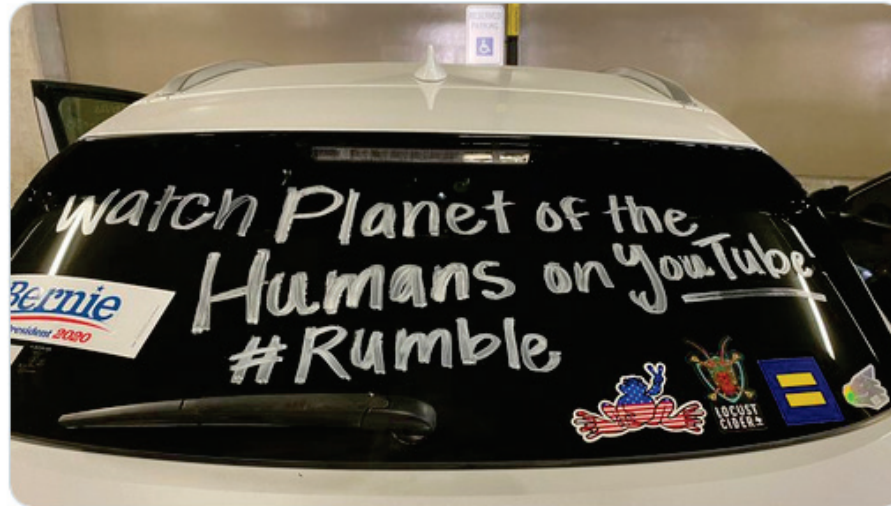 RESERVED
PARKING
watch Planet of the
Humans on YouTube!
#Rumble
Bernie
President 2020
LOCUST
CIDER